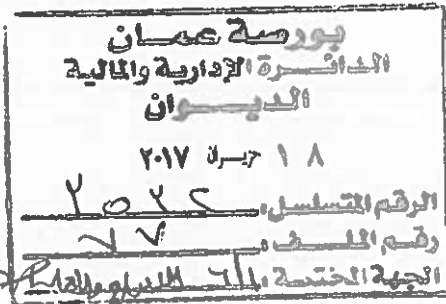 بورصة عمان
الدائرة الإدارية والمالية
الديوان
١٨ حزيران ٢٠١٧
الرقم المتسلسل:
رقم الملف:
الجهة المختصة: